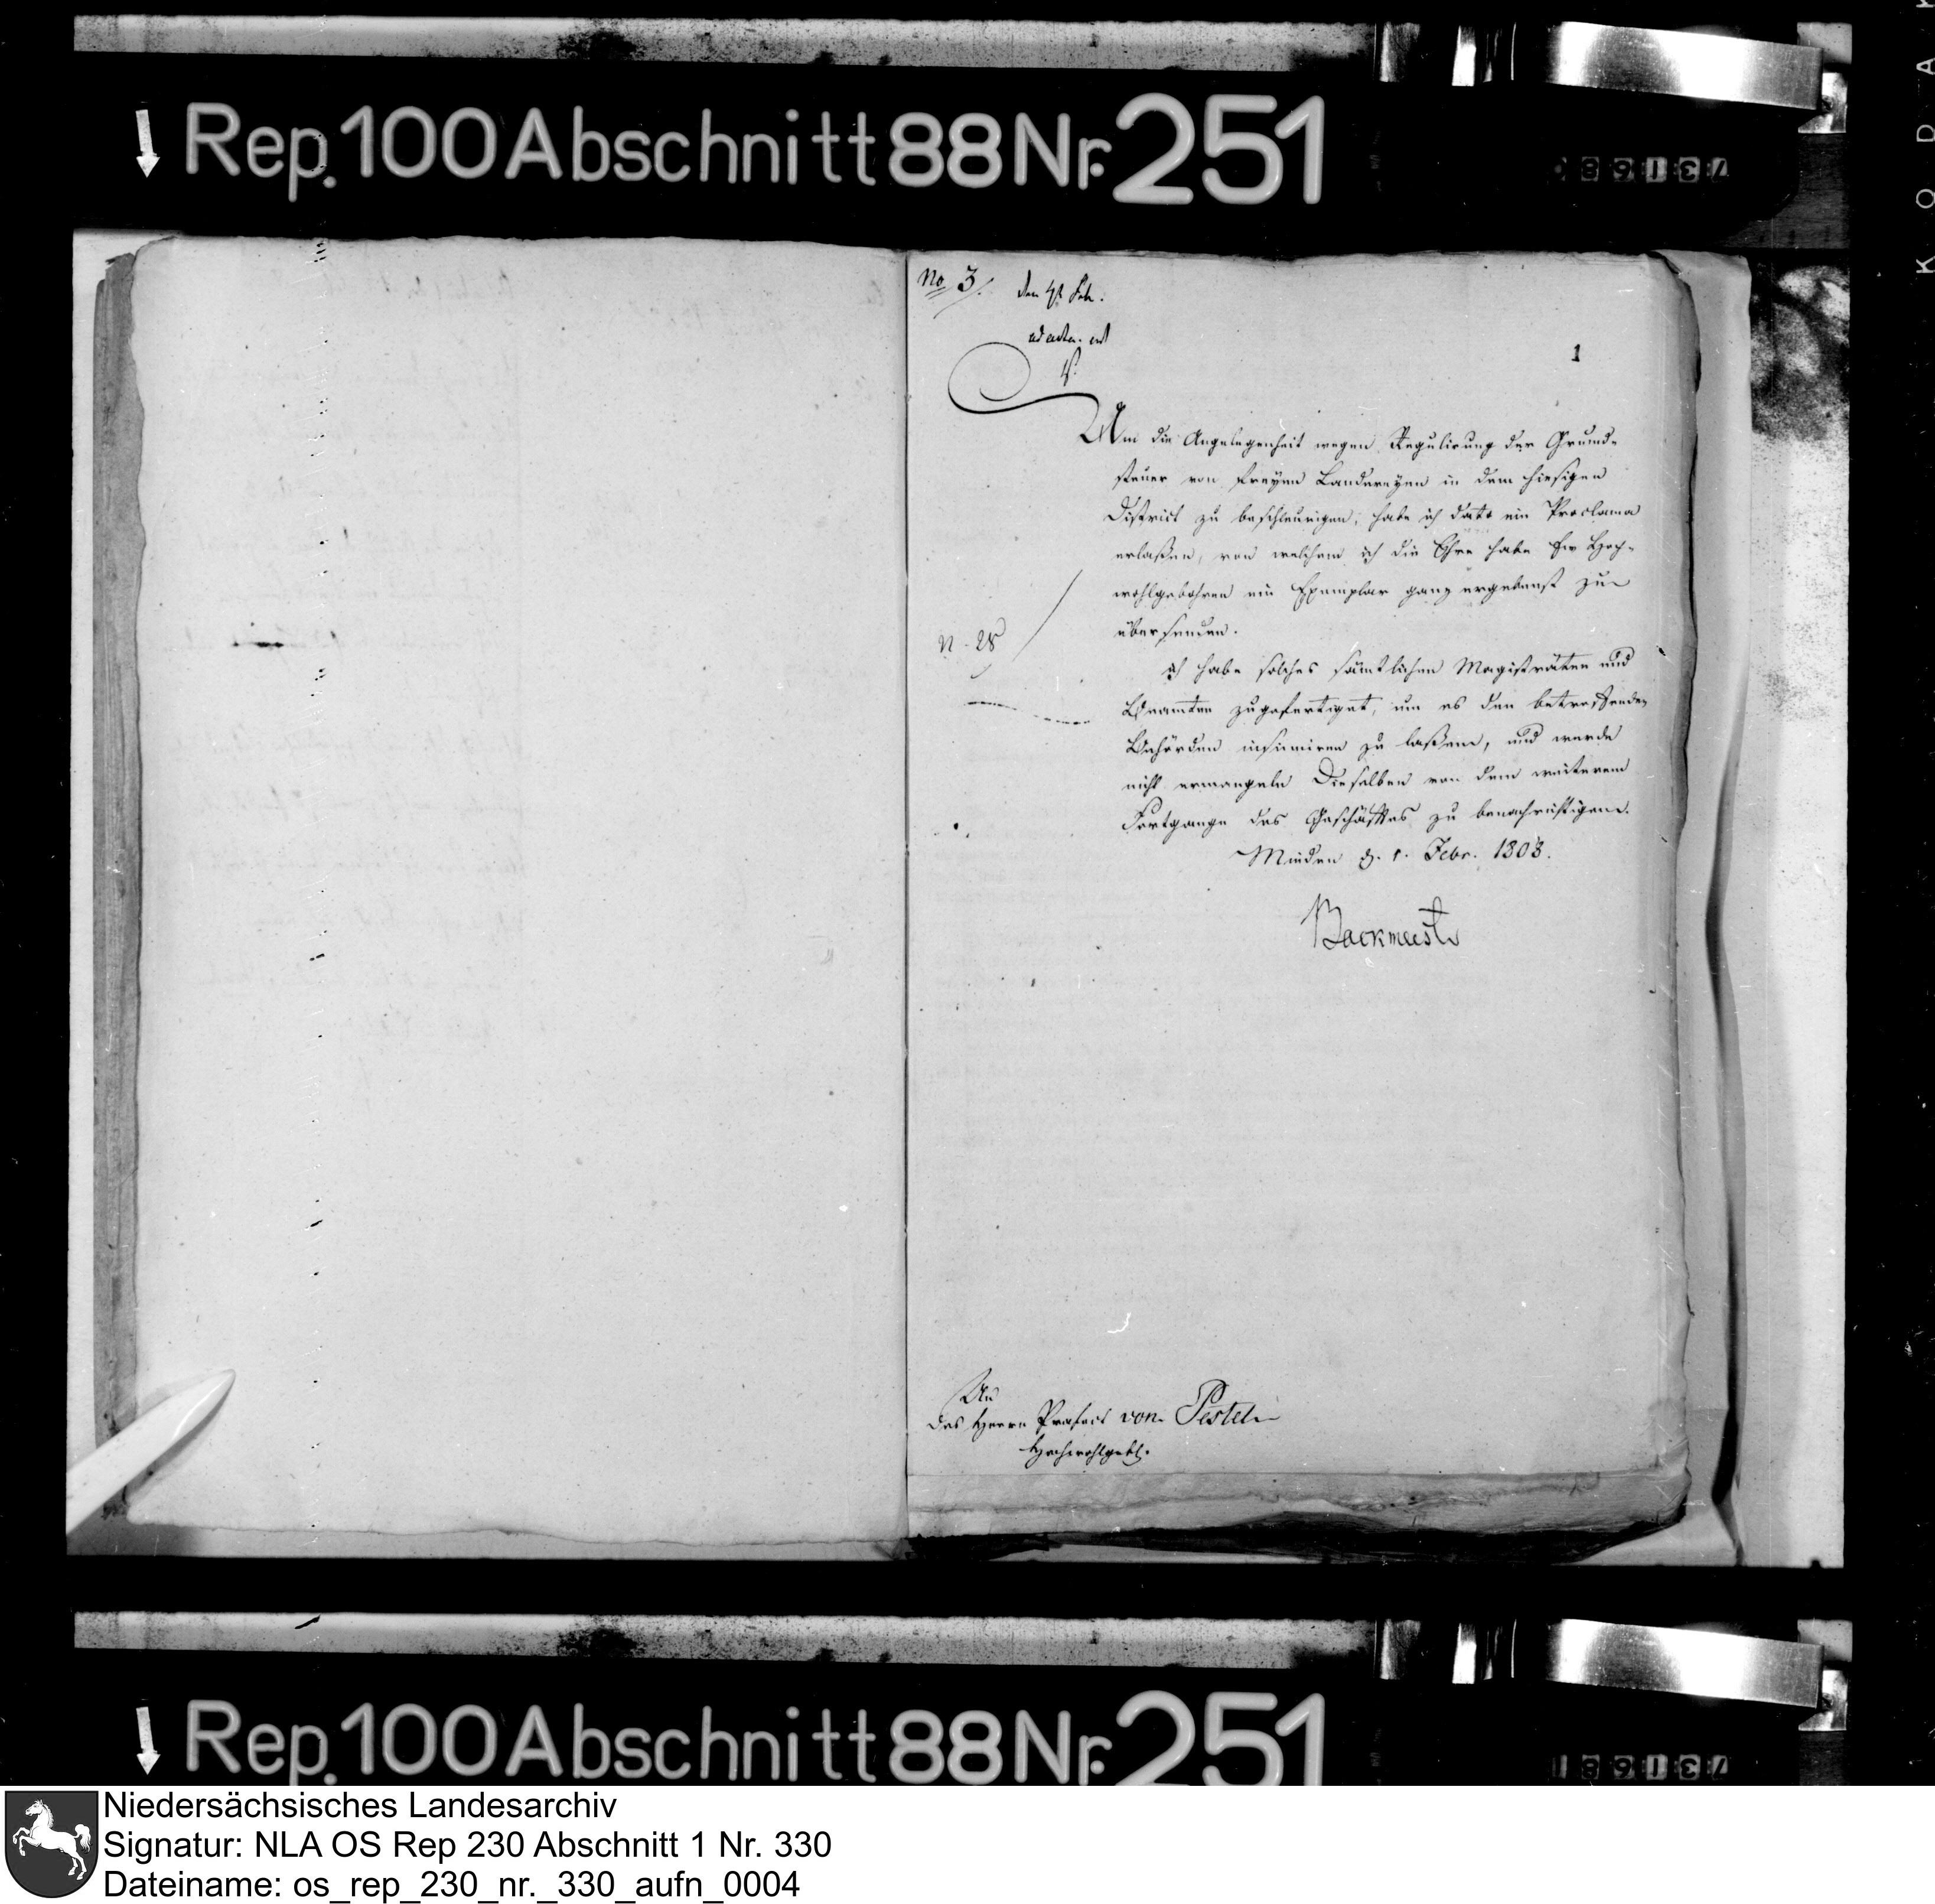 Rep. 100 Abschnitt 88 Nr. 251
KODAK
No 3/.
den 4t Feb.
ad acta.
1
Um die Angelegenheit wegen Regulirung der Grund-
steuer von freyen Landereyen in dem hiesigen
District zu beschleunigen, habe ich dato ein Proclama
erlaßen, von welchem ich die Ehre habe Ew Hoch-
wohlgebohren ein Exemplar ganz ergebenst zu
übersenden.
n. 28
ich habe solches sämtlichen Magisträten und
Beamten zugefertiget, um es den betreffenden
Behörden insinuiren zu laßen, und werde
nicht ermangeln Dieselben von dem weiterem
Fortgange des Geschäftes zu benachrichtigen.
Minden d. 1. Febr. 1808.
Backmeister
An
des Herrn Präfect von Pestel
Hochwohlgebl.
Rep. 100 Abschnitt 88 Nr. 251
Niedersächsisches Landesarchiv
Signatur: NLA OS Rep 230 Abschnitt 1 Nr. 330
Dateiname: os_rep_230_nr._330_aufn_0004